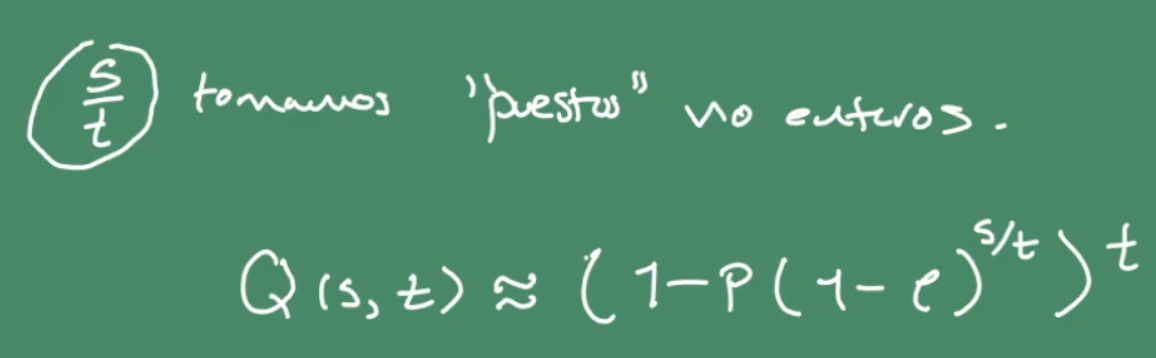 s/t tomamos "puestos" no enteros.
Q(s,t) ≈ (1-P(1-e)^{s/t})^t